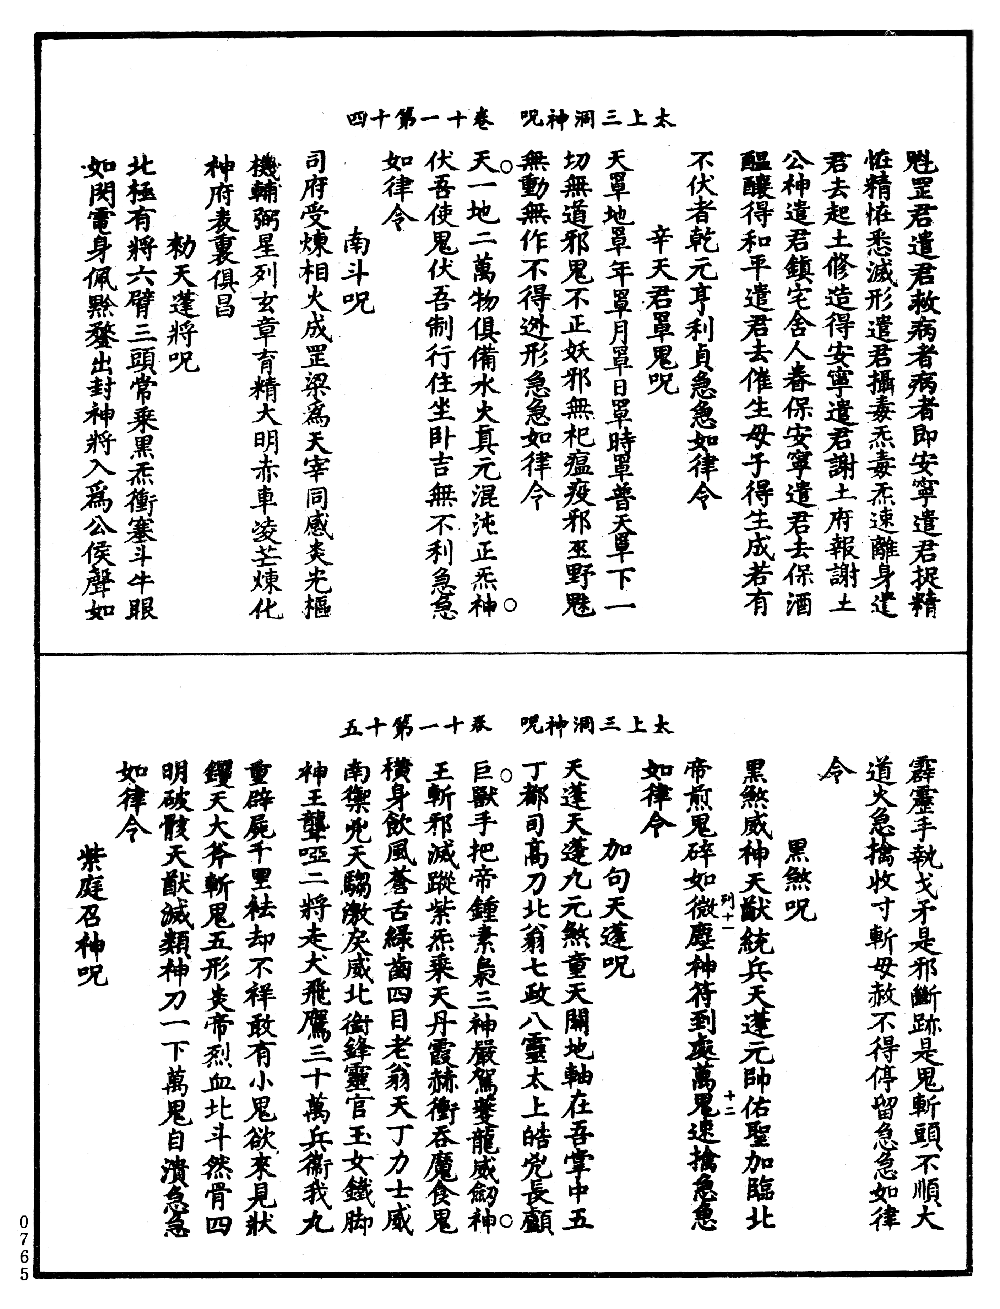 太上三洞神呪　卷十一第十四
魁罡君遣君救病者病者即安寧遣君捉精
恠精恠悉滅形遣君攝毒炁毒炁速離身遣
君去起土修造得安寧遣君謝土府報謝土
公神遣君鎮宅舍人眷保安寧遣君去保酒
醞釀得和平遣君去催生母子得生成若有
不伏者乾元亨利貞急急如律令
辛天君罩鬼呪
天罩地罩年罩月罩日罩時罩普天罩下一
切無道邪鬼不正妖邪無祀瘟疫邪巫野魅
無動無作不得逊形急急如律令
天一地二萬物俱備水火真元混沌正炁神
伏吾使鬼伏吾制行住坐卧吉無不利急急
如律令
南斗呪
司府受煉相火成罡梁爲天宰同感炎光樞
機輔弼星列玄章育精大明赤車凌芒煉化
神府表裏俱昌
勑天蓬將呪
北極有將六臂三頭常乘黑炁衝塞斗牛眼
如閃電身佩黔鍪出封神將入爲公侯聲如
太上三洞神呪　卷十一第十五
霹靂手執戈矛是邪斷跡是鬼斬頭不順大
道火急擒收寸斬毋赦不得停留急急如律
令
黑煞呪
黑煞威神天猷統兵天蓬元帥佑聖加臨北
列十一　十二
帝煎鬼碎如微塵神符到處萬鬼速擒急急
如律令
加句天蓬呪
天蓬天蓬九元煞童天關地軸在吾掌中五
丁都司高刀北翁七政八靈太上皓兇長顱
巨獸手把帝鍾素梟三神嚴駕夔龍威劒神
王斬邪滅蹤紫炁乘天丹霞赫衝吞魔食鬼
橫身飲風蒼舌綠齒四目老翁天丁力士威
南禦兇天騶激戾威北銜鋒靈官玉女鐵脚
神王聾啞二將走犬飛鷹三十萬兵衞我九
重辟屍千里袪却不祥敢有小鬼欲來見狀
钁天大斧斬鬼五形炎帝烈血北斗然骨四
明破骸天猷滅類神刀一下萬鬼自潰急急
如律令
紫庭召神呪
0765